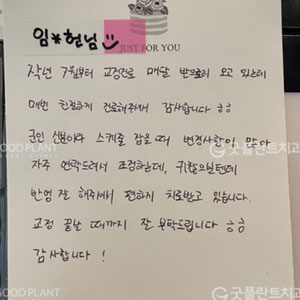 임*현님
JUST FOR YOU
작년 7월부터 교정진료 매달 받으러 오고 있는데
매번 친절하게 진료해주셔서 감사합니다 ㅎㅎ
군인 신분이라 스케줄 잡을 때 변경사항이 많아
자주 연락드려서 조정하는데, 귀찮으실텐데
반영 잘 해주셔서 편하게 치료받고 있습니다.
교정 끝날 때까지 잘 부탁드립니다 ㅎㅎ
감사합니다 !
GOOD PLANT
굿플란트치과
GOOD PLANT
굿플란트치과